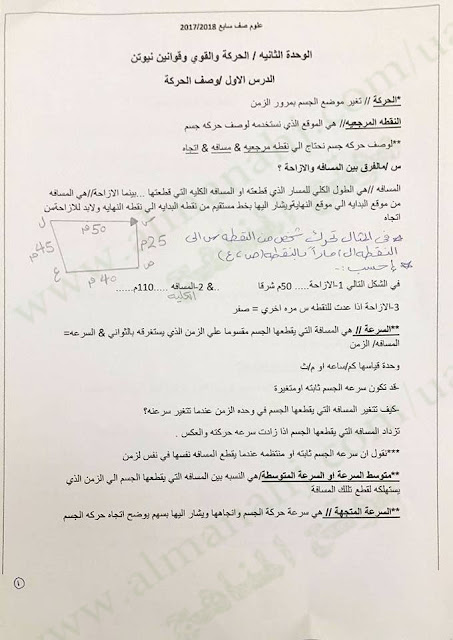 علوم صف سابع 2017/2018
الوحدة الثانيه / الحركة والقوي وقوانين نيوتن
الدرس الاول /وصف الحركة
*الحركة // تغير موضع الجسم بمرور الزمن
النقطه المرجعيه// هي الموقع الذي نستخدمه لوصف حركه جسم
**لوصف حركه جسم نحتاج الي نقطه مرجعيه & مسافه & اتجاه
س /مالفرق بين المسافه والازاحة ؟
المسافه //هي الطول الكلي للمسار الذي قطعته او المسافه الكليه التي قطعتها ...بينما الازاحة//هي المسافه
من موقع البدايه الي موقع النهايةويشار اليها بخط مستقيم من نقطه البدايه الي نقطه النهايه ولابد للازاحةمن
اتجاه
ل 50م س
45م 25م
ع 40م ص
* في المثال تحرك شخص من النقطه س الى
النقطه ل ماراً بالنقطه (ص، ع)
احسب :-
في الشكل التالي 1-الازاحة..... 50م شرقا ..& 2-المسافه .....110م......
الكلية
3-الازاحة اذا عدت للنقطه س مره اخري = صفر
**السرعة // هي المسافة التي يقطعها الجسم مقسوما علي الزمن الذي يستغرقه بالثواني & السرعه=
المسافه/ الزمن
وحدة قياسها كم/ساعه او م/ث
-قد تكون سرعه الجسم ثابته اومتغيرة
-كيف تتغير المسافه التي يقطعها الجسم في وحده الزمن عندما تتغير سرعته؟
تزداد المسافه التي يقطعها الجسم اذا زادت سرعه حركته والعكس .
***نقول ان سرعه الجسم ثابته او منتظمه عندما يقطع المسافه نفسها في نفس لزمن
**متوسط السرعة او السرعة المتوسطة/هي النسبه بين المسافه التي يقطعها الجسم الي الزمن الذي
يستهلكه لقطع تلك المسافة
**السرعة المتجهة // هي سرعة حركة الجسم واتجاهها ويشار اليها بسهم يوضح اتجاه حركه الجسم
١
www.almanahj.com/uae
مناهج